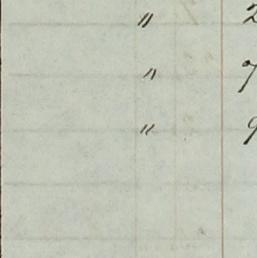 " 2
" 7
" 9